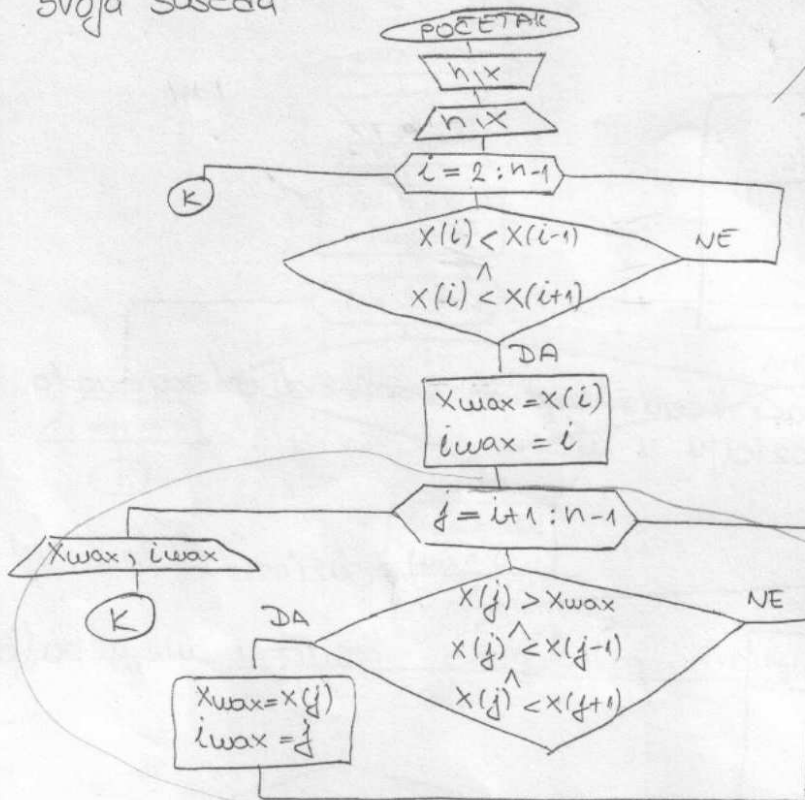 svoja suseda
POČETAK
n, x
n, x
i = 2 : n-1
K
x(i) < x(i-1)
∧
x(i) < x(i+1)
NE
DA
xmax = x(i)
imax = i
j = i+1 : n-1
xmax, imax
K
DA
x(j) > xmax
∧
x(j) < x(j-1)
∧
x(j) < x(j+1)
NE
xmax = x(j)
imax = j